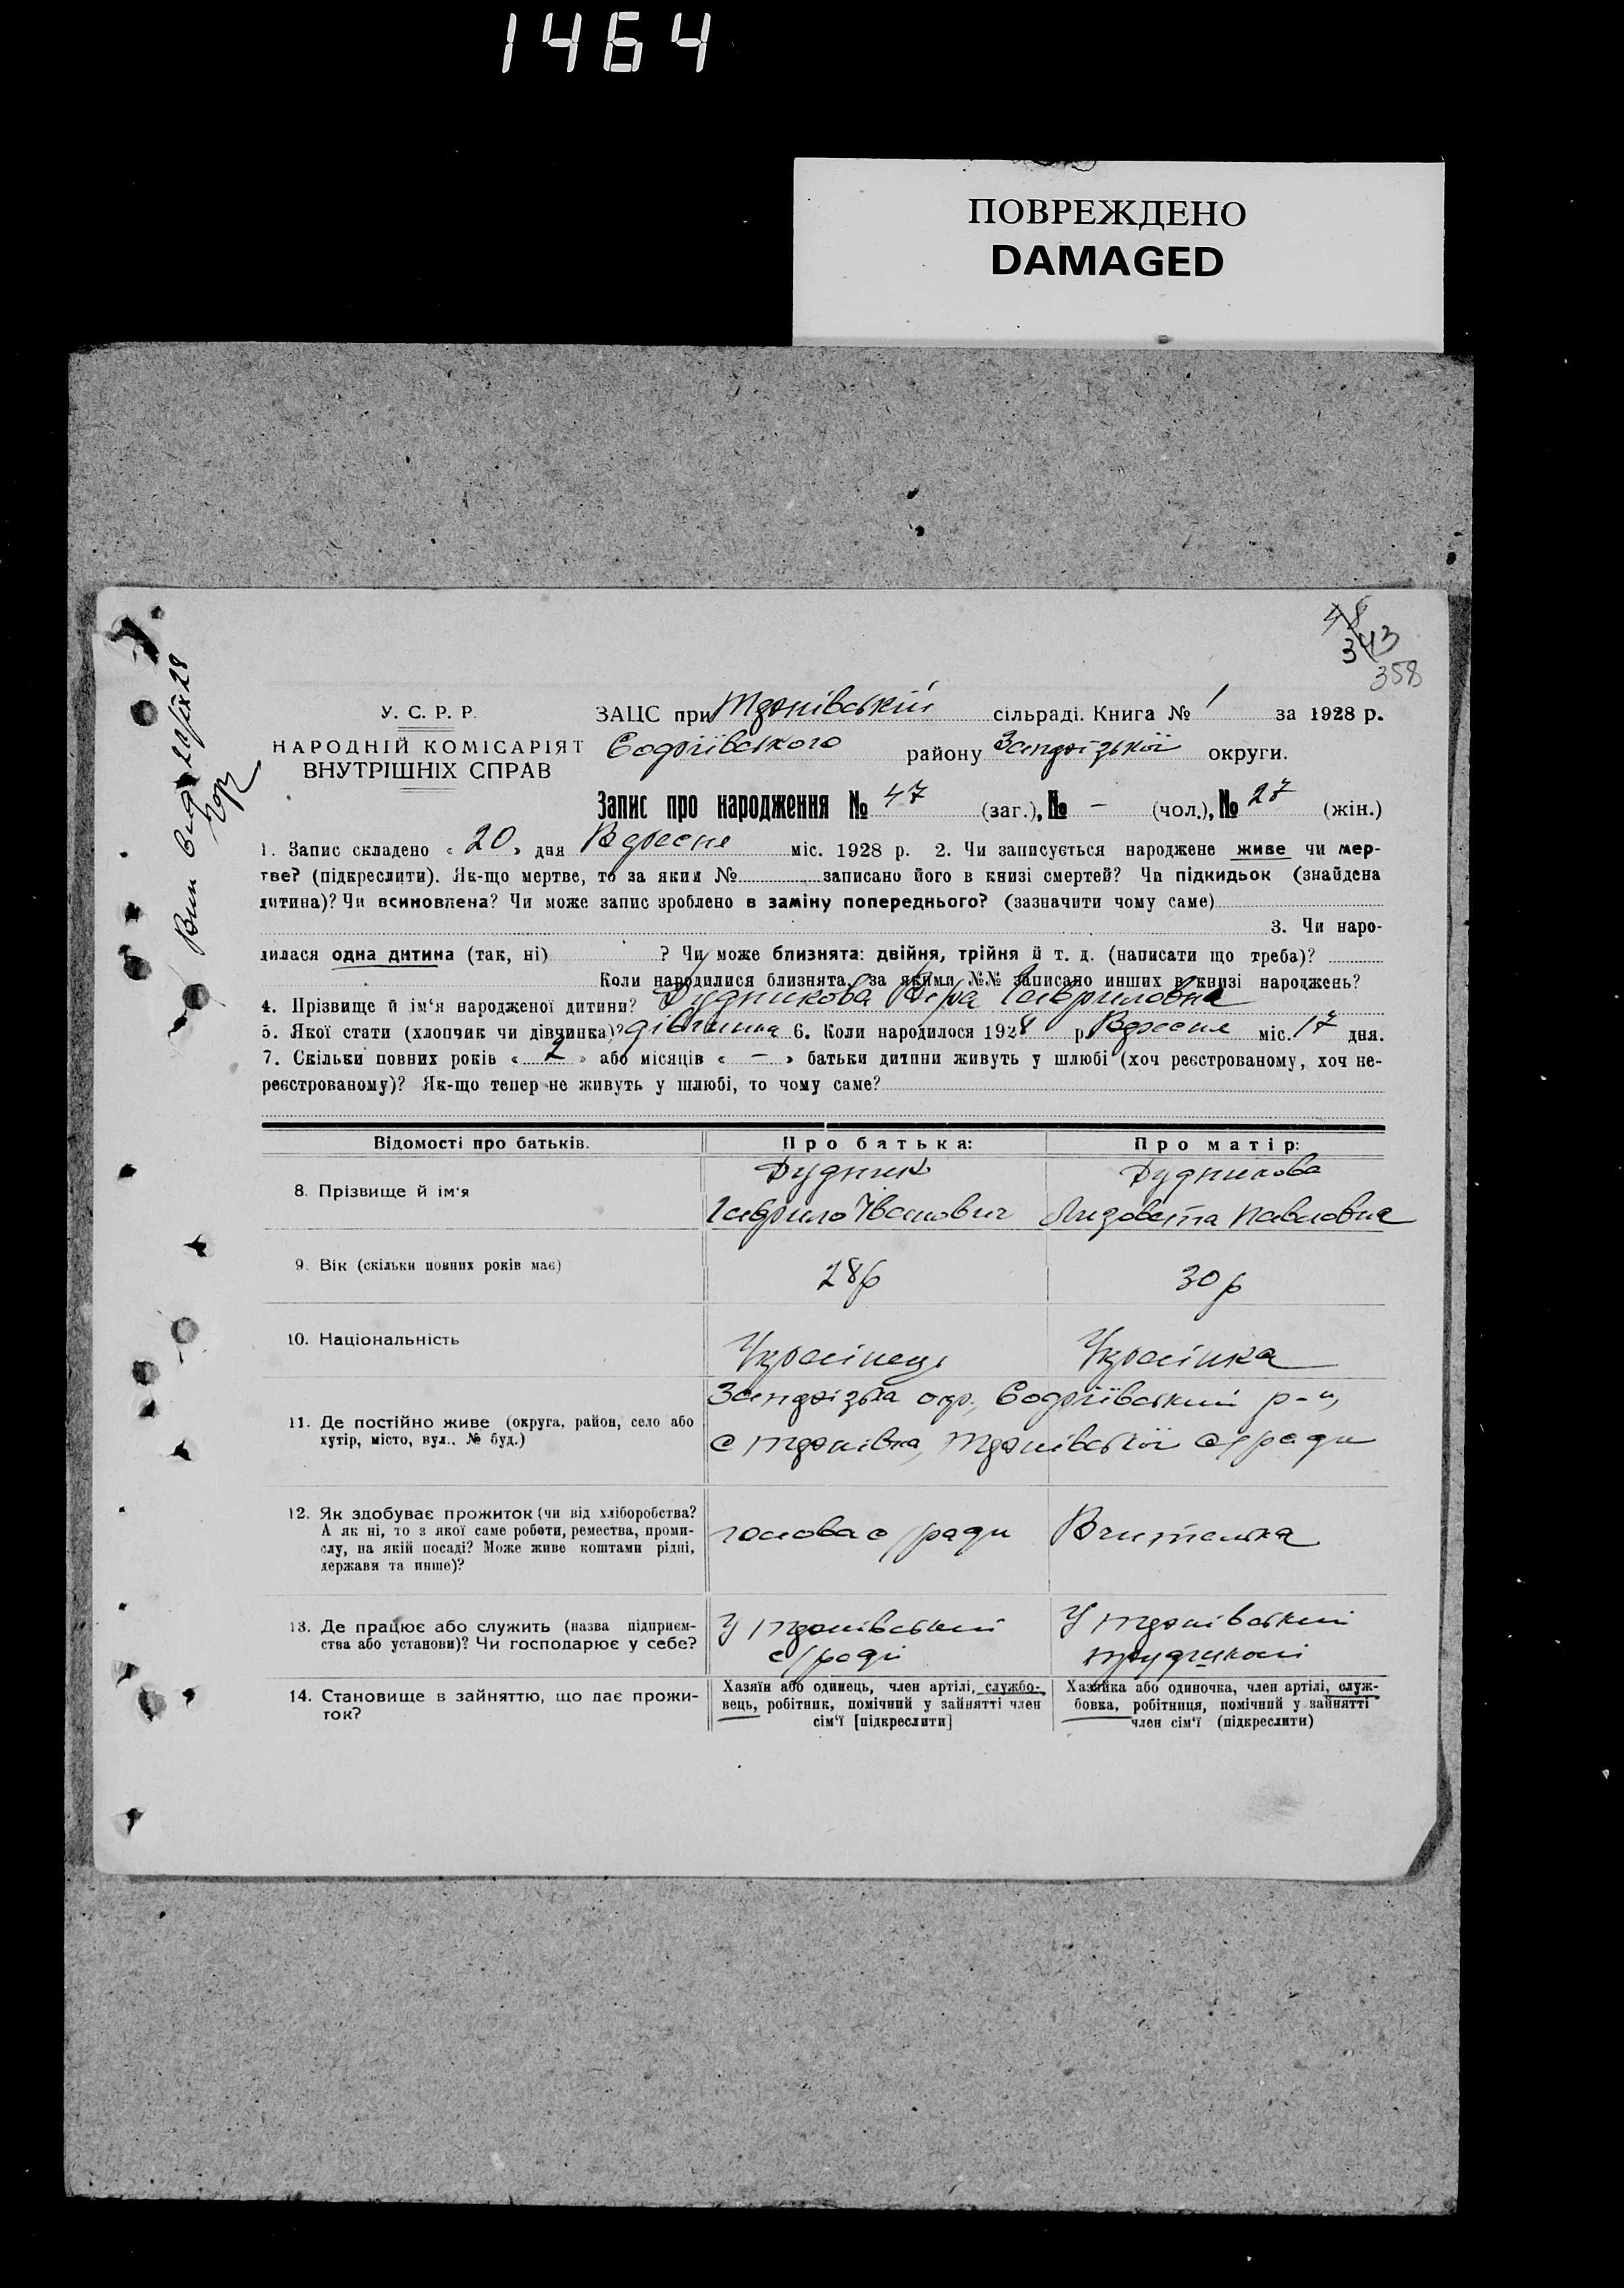 1464
ПОВРЕЖДЕНО
DAMAGED
48
343
358
У. С. Р. Р.
НАРОДНІЙ КОМІСАРІЯТ
ВНУТРІШНІХ СПРАВ
ЗАЦС при сільраді. Книга № 1 за 1928 р.
Софіївського району Запорізької округи.
Запис про народження № 47 (заг.), № – (чол.), № 27 (жін.)
1. Запис складено « 20 » дня Вересня міс. 1928 р. 2. Чи записується народжене живе чи мер-
тве? (підкреслити). Як-що мертве, то за яким № записано його в книзі смертей? Чи підкидьок (знайдена
дитина)? Чи всиновлена? Чи може запис зроблено в заміну попереднього? (зазначити чому саме)
3. Чи наро-
дилася одна дитина (так, ні) ? Чи може близнята: двійня, трійня й т. д. (написати що треба)?
Коли народилися близнята, за якими №№ записано инших в книзі народжень?
4. Прізвище й ім‘я народженої дитини? Дудникова Вера Гавриловна
5. Якої стати (хлопчик чи дівчинка)? дівчинка 6. Коли народилося 1928 р. Вересня міс. 17 дня.
7. Скільки повних років « 2 » або місяців « – » батьки дитини живуть у шлюбі (хоч реєстрованому, хоч не-
реєстрованому)? Як-що тепер не живуть у шлюбі, то чому саме?
Відомості про батьків. Про батька: Про матір:
8. Прізвище й ім‘я
Дудник
Гаврило Іванович
Дудникова
Лизовета Павловна
9. Вік (скільки повних років має) 28 р 30 р
10. Національність Українець Українка
11. Де постійно живе (округа, район, село або
хутір, місто, вул., № буд.)
Запорізька окр., Софіївський р-н,
с
с/ради
12. Як здобуває прожиток (чи від хліборобства?
А як ні, то з якої саме роботи, ремества, проми-
слу, на якій посаді? Може живе коштами рідні,
держави та инше)?
голова с/ради Вчителька
13. Де працює або служить (назва підприєм-
ства або установи)? Чи господарює у себе?
У
с/раді
У
трудшколі
14. Становище в зайняттю, що дає прожи-
ток?
Хазяїн або одинець, член артілі, службо-
вець, робітник, помічний у зайнятті член
сім‘ї [підкреслити]
Хазяйка або одиночка, член артілі, служ-
бовка, робітниця, помічний у зайнятті
член сім‘ї (підкреслити)